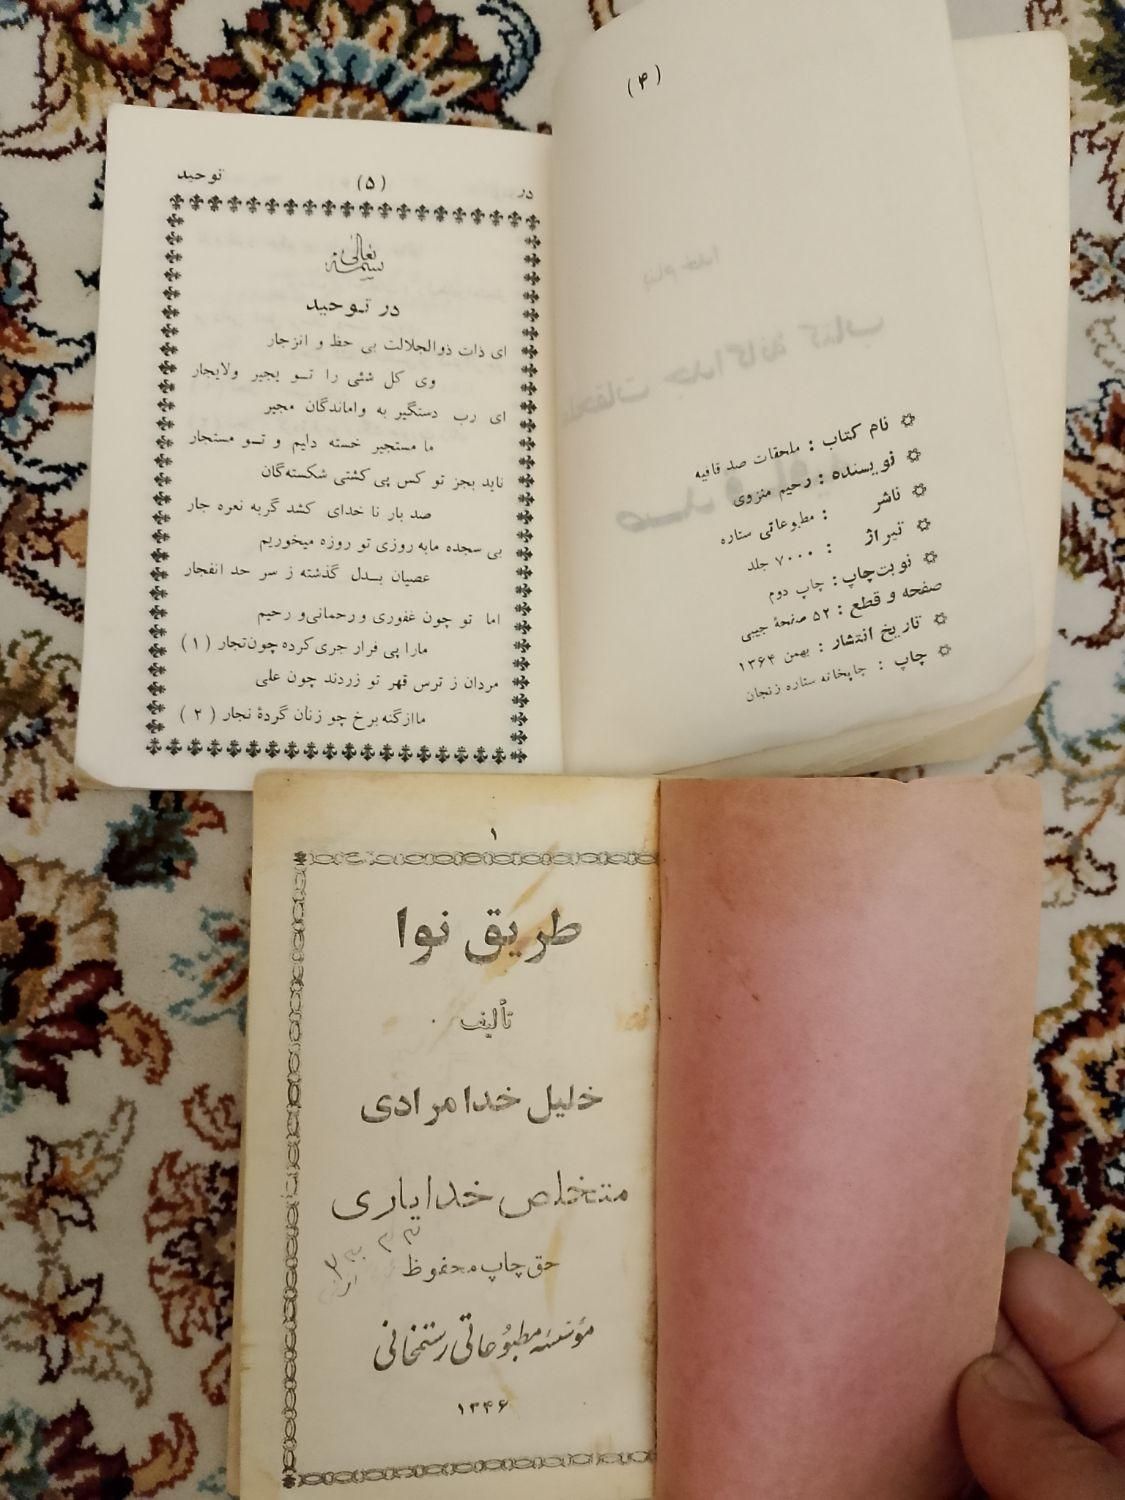 (۴)
نام کتاب : ملحقات صد قافیه
نویسنده : رحیم منزوی
ناشر : مطبوعاتی ستاره
تیراژ : ۷۰۰۰ جلد
نوبت‌چاپ : چاپ دوم
صفحه و قطع : ۵۲ صفحهٔ جیبی
تاریخ انتشار : بهمن ۱۳۶۴
چاپ : چاپخانه ستاره زنجان
در (۵) توحید
بسمه تعالی
در توحید
ای ذات ذوالجلالت بی حظ و انزجار
وی کل شئی را تو یجیر ولایجار
ای رب دستگیر به واماندگان مجیر
ما مستجیر خسته دلیم و تو مستجار
ناید بجز تو کس پی کشتی شکسته‌گان
صد بار نا خدای کشد گربه نعره جار
بی سجده مابه روزی تو روزه میخوریم
عصیان بدل گذشته ز سر حد انفجار
اما تو چون غفوری و رحمانی و رحیم
مارا پی فرار جری کرده چون‌تجار (۱)
مردان ز ترس قهر تو زردند چون علی
ماازگنه برخ چو زنان گردهٔ نجار (۲)
۱
طریق نوا
تألیف
خلیل خدامرادی
متخلص خدایاری
حق چاپ محفوظ
مؤسسه مطبوعاتی رستمخانی
۱۳۴۶